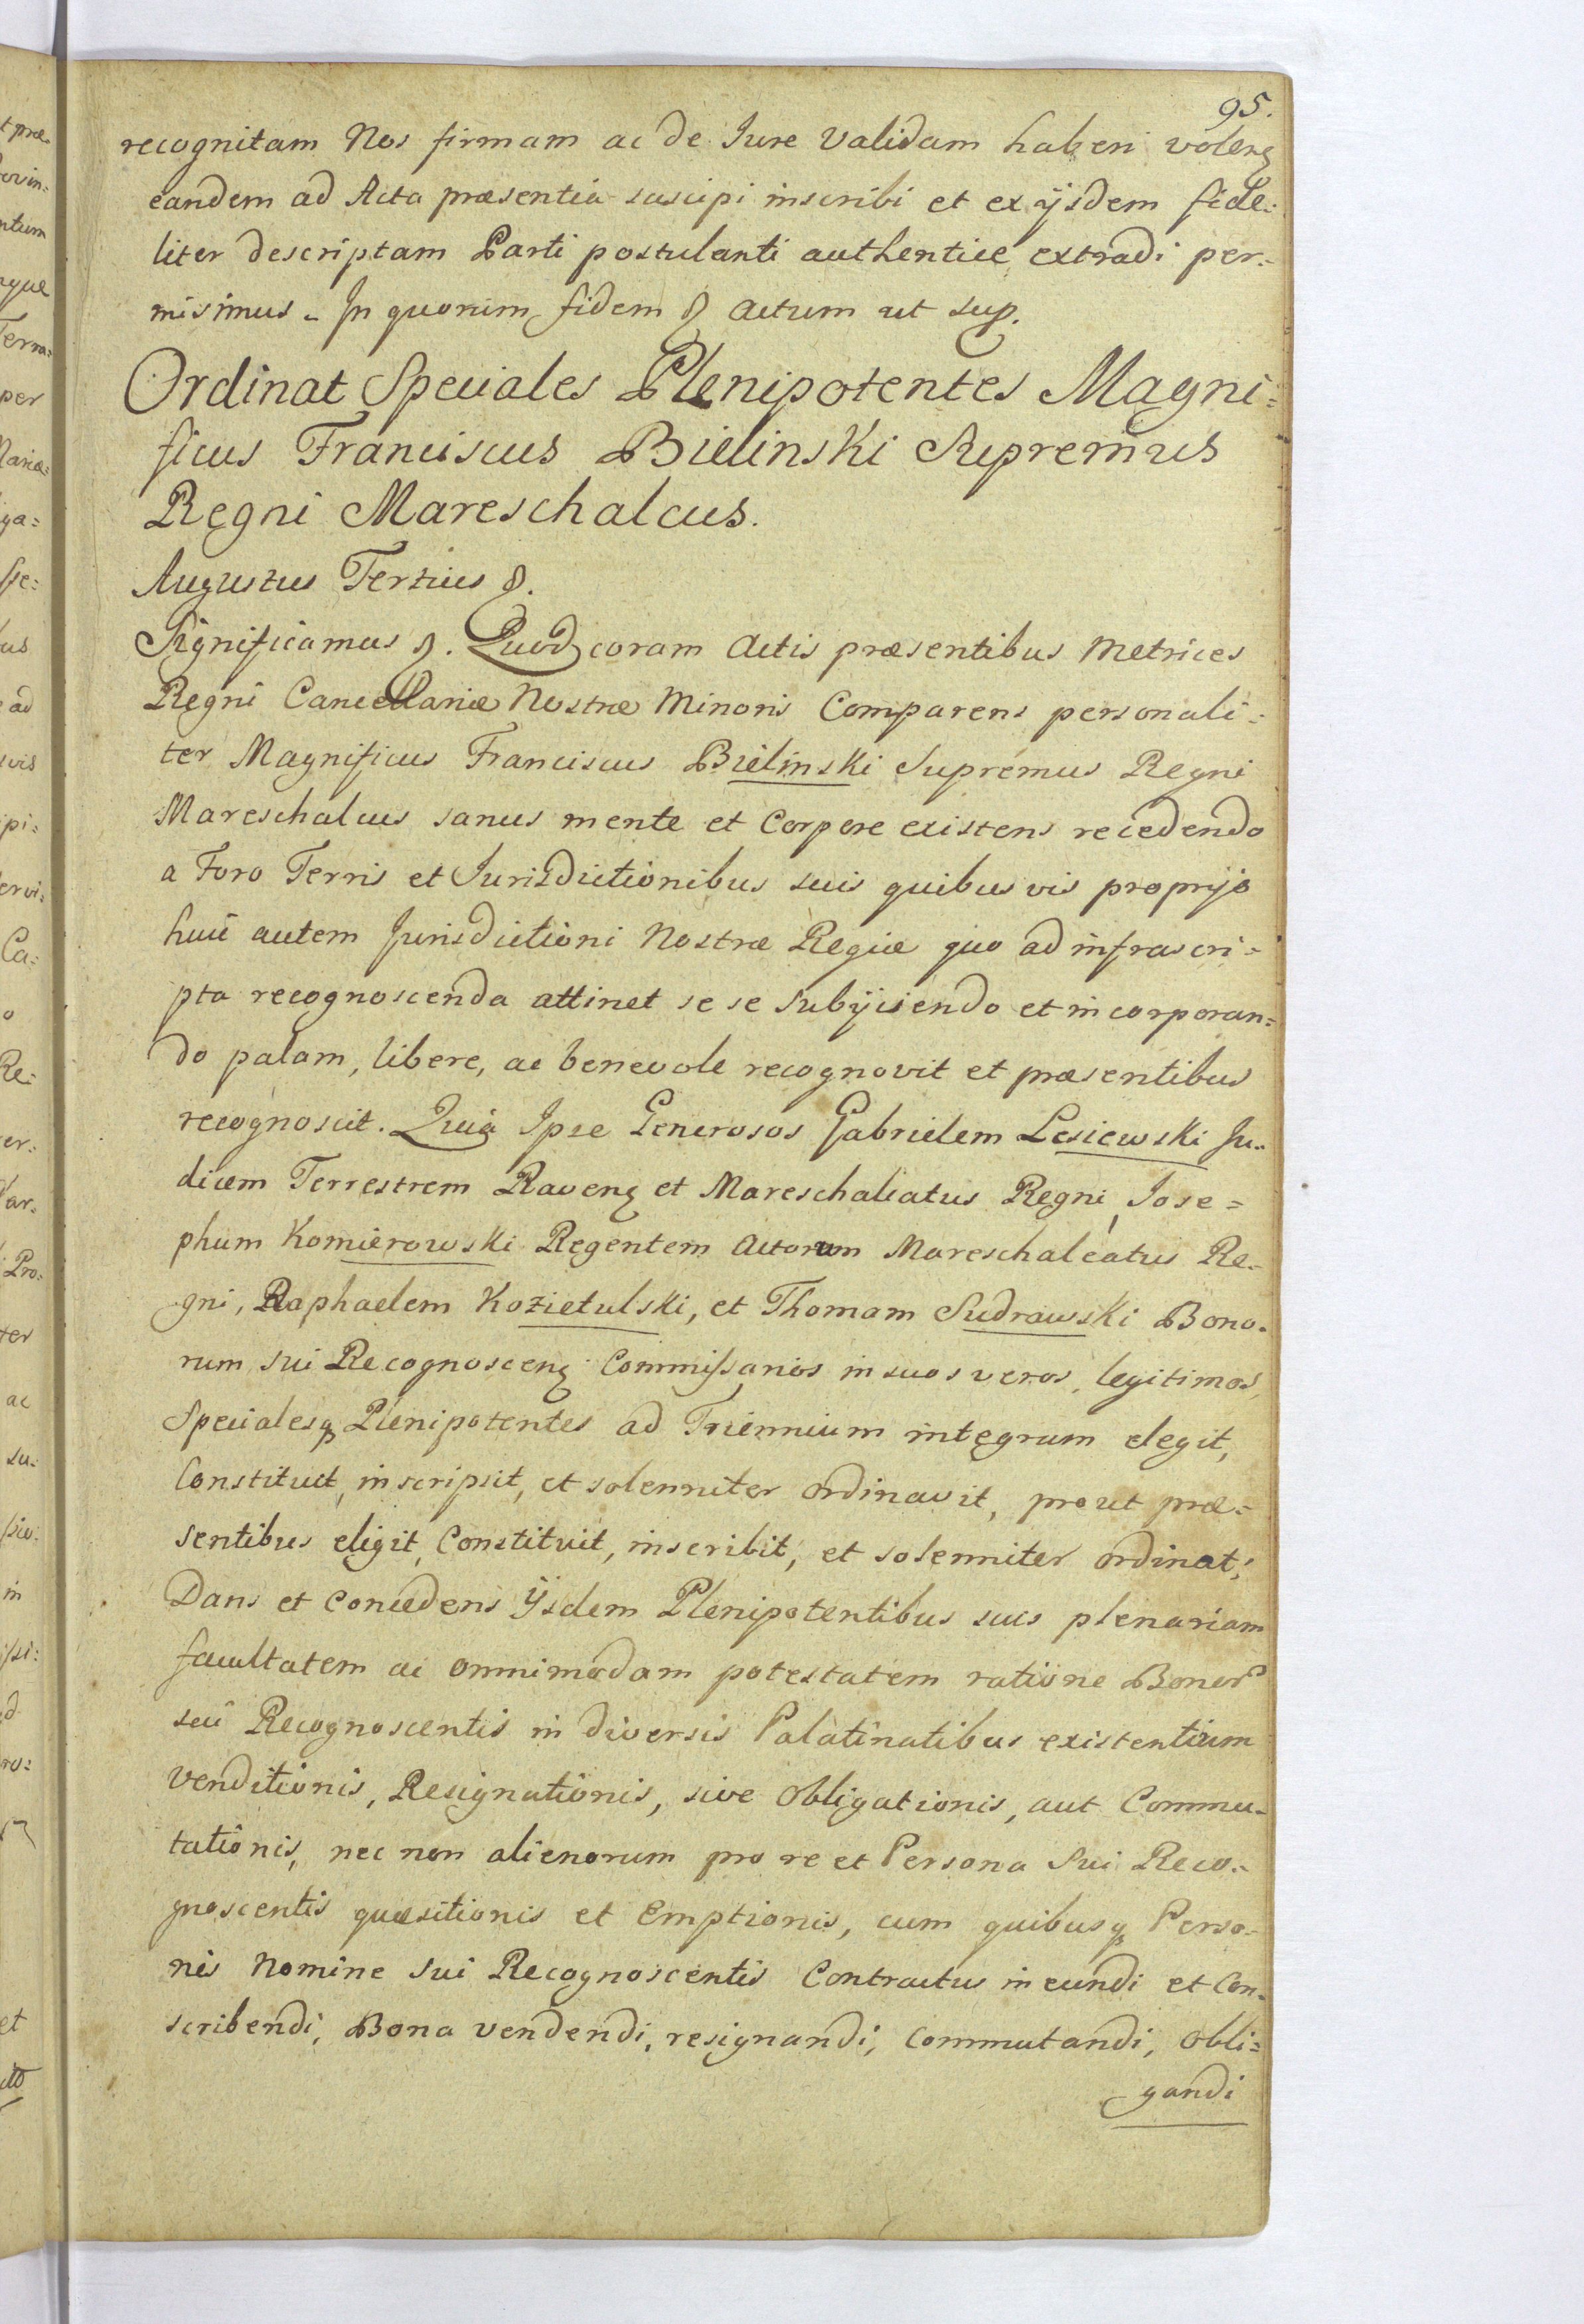 95.
recognitam Nos firmam ac de Jure Validam haberi volenȝ
eandem ad Acta præsentia suscipi inscribi et ex ijsdem fide-
liter descriptam Parti postulanti authentice extradi per-
misimus. In quorum fidem &. Actum ut sup.
Ordinat Speciales Plenipotentes Magni=
ficus Franciscus Bielinski Supremus
Regni Mareschalcus.
Augustus Tertius &.
Significamus &. Quod coram Actis præsentibus Metrices
Regni Cancellariæ Nostræ Minoris Comparens personali=
ter Magnificus Franciscus Bielinski Supremus Regni
Mareschalcus sanus mente et Corpore existens recedendo
a Foro Terris et Jurisdictionibus suis quibusvis proprijs
huic autem Jurisdictioni Nostræ Regiæ quo ad infrascri=
pta recognoscenda attinet se se Subijciendo et incorporan=
do palam, libere, ac benevole recognovit et præsentibus
recognoscit. Quia Ipse Generosos Gabrielem Lesiewski Ju-
dicem Terrestrem Ravenȝ et Mareschalcatus Regni, Jose=
phum Komierowski Regentem Actorum Mareschalcatus Re-
gni, Raphaelem Kozietulski, et Thomam Sudrawski Bono-
rum sui Recognoscenȝ Commissarios in suos veros, legitimos,
Specialesqȝ Plenipotentes ad Triennium integrum elegit,
Constituit, inscripsit, et solenniter ordinavit, prout præ=
sentibus eligit, Constituit, inscribit, et solenniter ordinat;
Dans et Concedens Ijsdem Plenipotentibus suis plenariam
facultatem ac omnimodam potestatem ratione Bonor
sui Recognoscentis in diversis Palatinatibus existentium
Venditionis, Resignationis, sive Obligationis, aut Commu-
tationis, nec non alienorum pro re et Persona Sui Reco-
gnoscentis quæsitionis et Emptionis, cum quibusqȝ Perso-
nis Nomine Sui Recognoscentis Contractus ineundi et Con-
scribendi, Bona vendendi, resignandi, Commutandi, Obli=
gandi